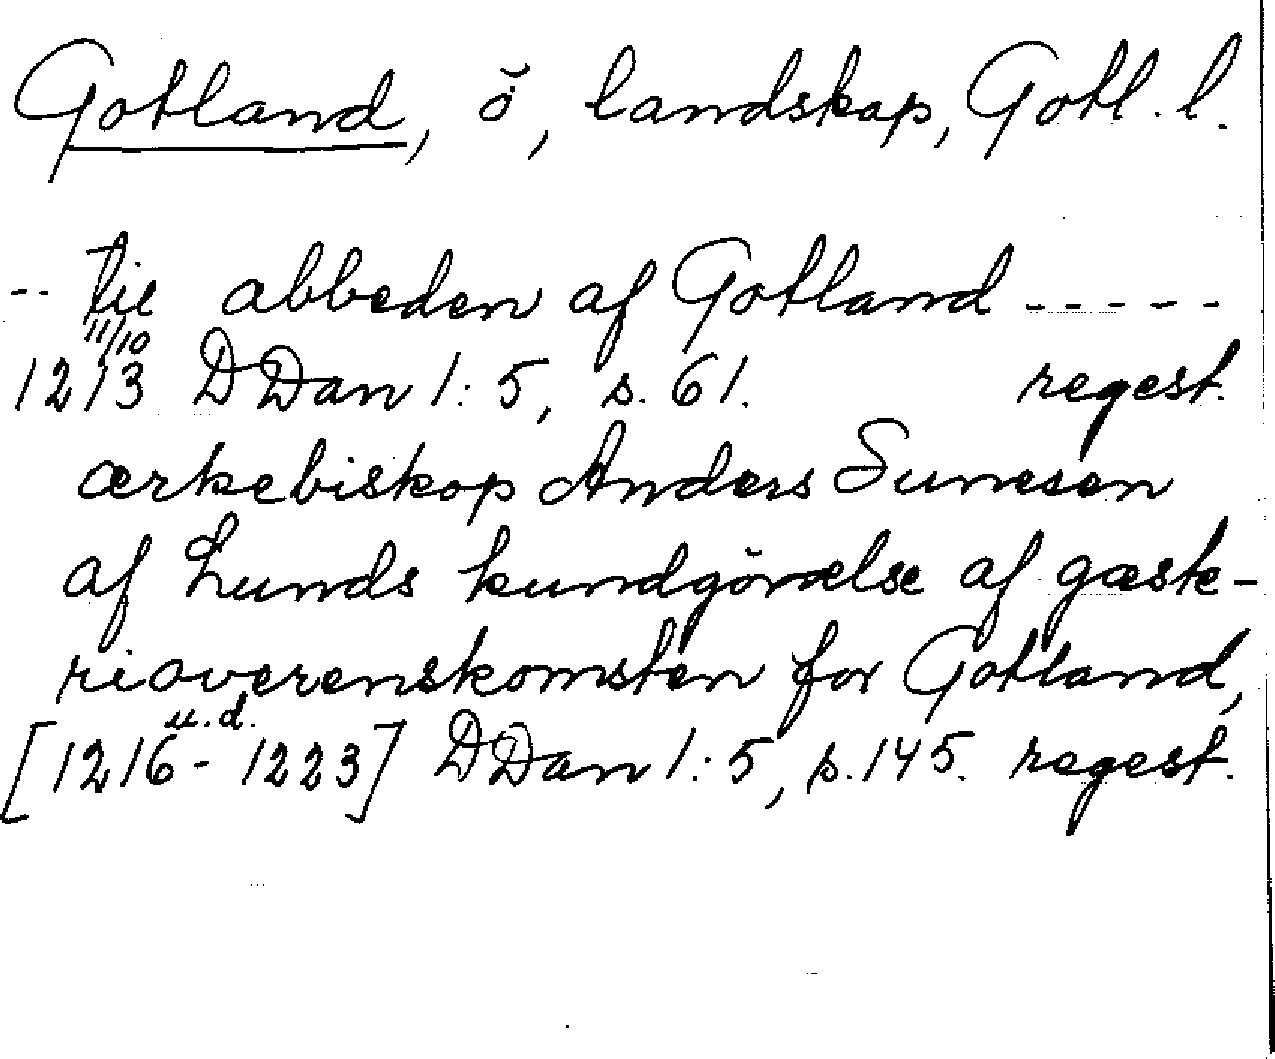 Gotland, ö, landskap, Gotl. l.
-- til abbeden af Gotland -----
11/10
1213 DDan 1:5, s. 61. regest.
ærkebiskop Anders Sunesen
af Lunds kundgörelse af gæste-
rioverenskomsten for Gotland,
u.d.
[1216-1223] DDan 1:5, s. 145. regest.